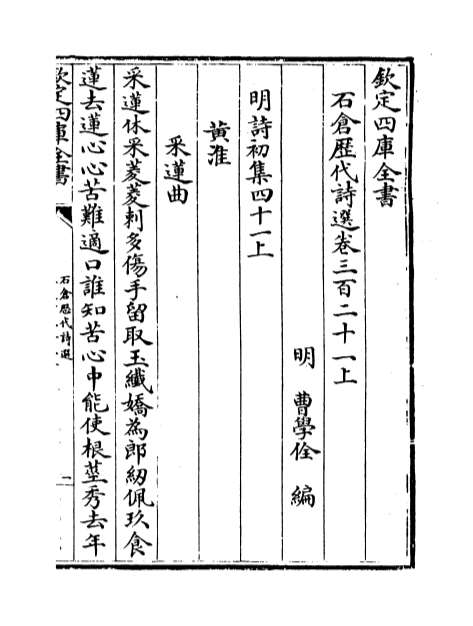 欽定四庫全書
石倉歴代詩選卷三百二十一上
明　曹學佺　編
明詩初集四十一上
黄淮
采蓮曲
采蓮休采菱菱刺多傷手留取玉纎嬌為郎紉佩玖食
蓮去蓮心心苦難適口誰知苦心中能使根莖秀去年
欽定四庫全書
石倉歴代詩選
一